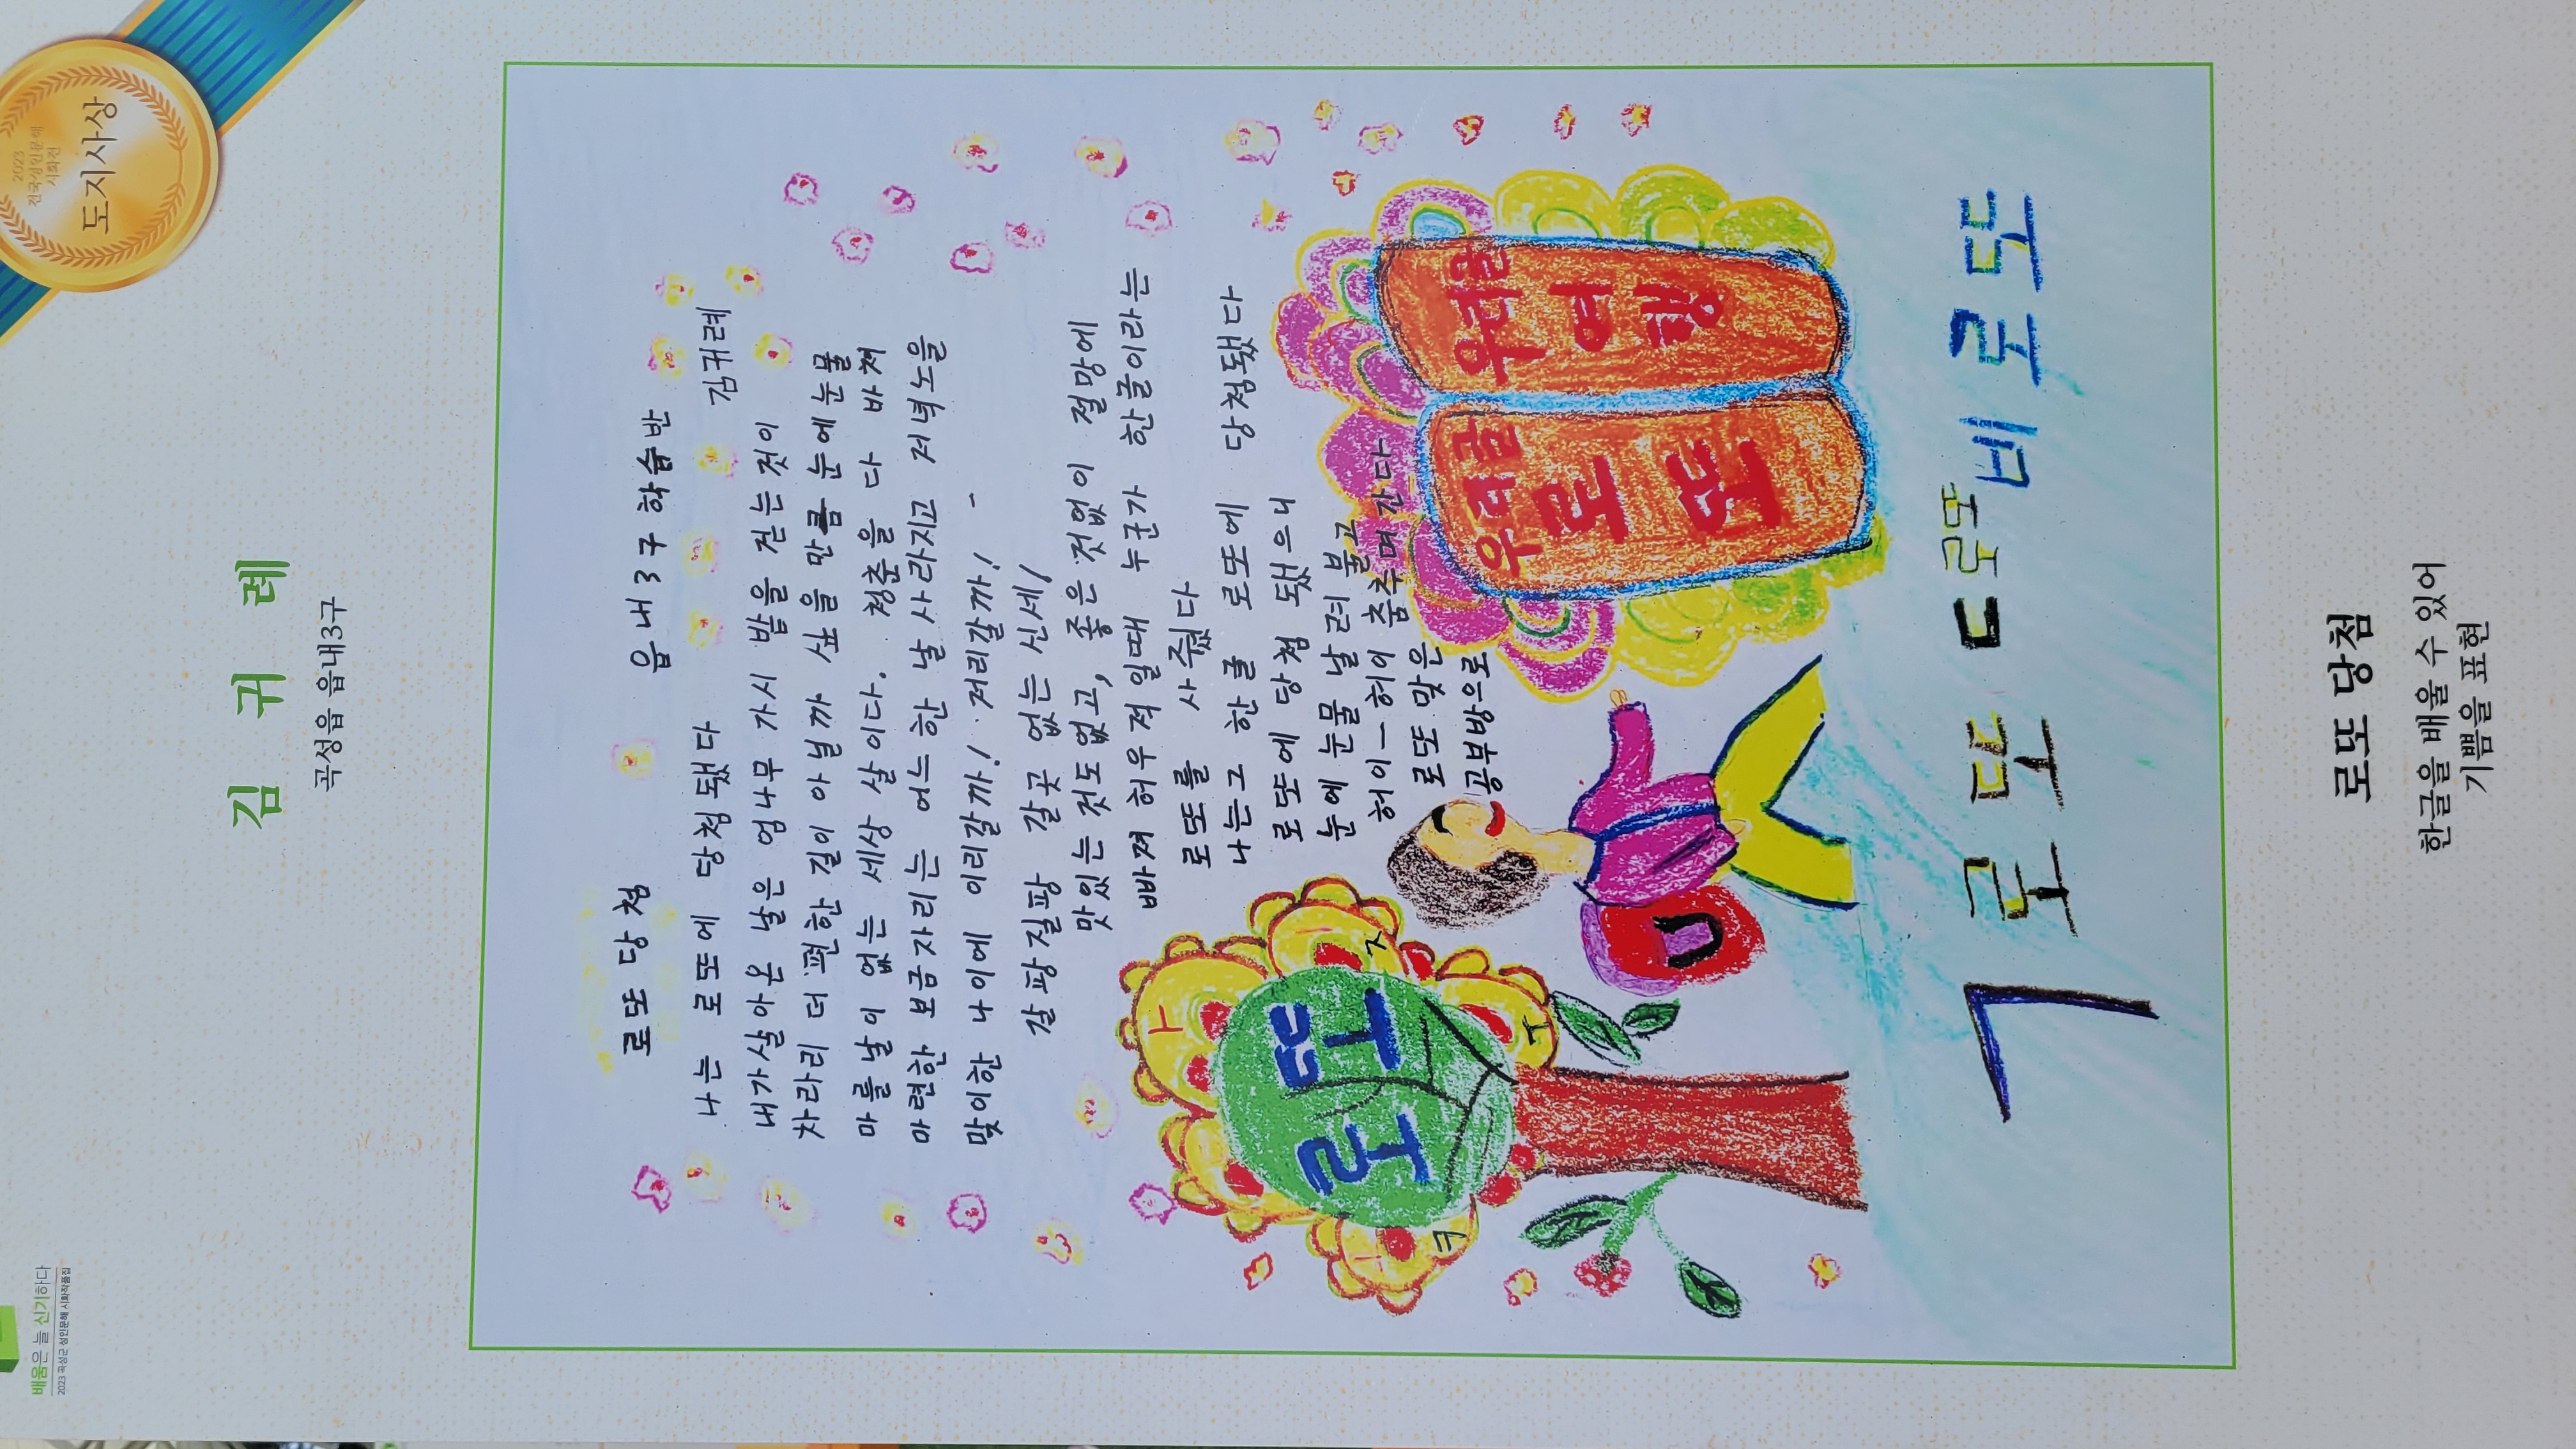 배움은 늘 신기하다
2023 곡성군 성인문해 시화작품집
2023
전국성인문해
시화전
도지사상
김귀례
곡성읍 읍내3구
로또 당첨
읍내3구 학습반
김귀례
나는 로또에 당첨됐다
내가살아온 날은 엄나무 가시 밭을 걷는것이
차라리 더 편한 길이 아닐까 싶을 만큼 눈에눈물
마를날이 없는 세상 살이다. 청춘을 다 바쳐
아련한 보금자리는 어느한 날 사라지고 저녁노을
맞이한 나이에 이리갈까! 저리갈까!
갈팡질팡 갈곳 없는 신세!
맛있는 것도없고, 좋은 것없이 절망에
빠져 허우적일때 누군가 한글이라는
로또를 사줬다
나는그 한글 로또에 당첨됐다
로또에 당첨 됐으니
눈에 눈물 날려 불고
허이-허이 춤추며간다
로또 맞은
공부방으로
로또
ㅏ
ㅈ
ㅋ
우리글
로
또
우리글
여
행
ㄱ 로또 ㄷ 로또 비 로또
로또 당첨
한글을 배울 수 있어
기쁨을 표현